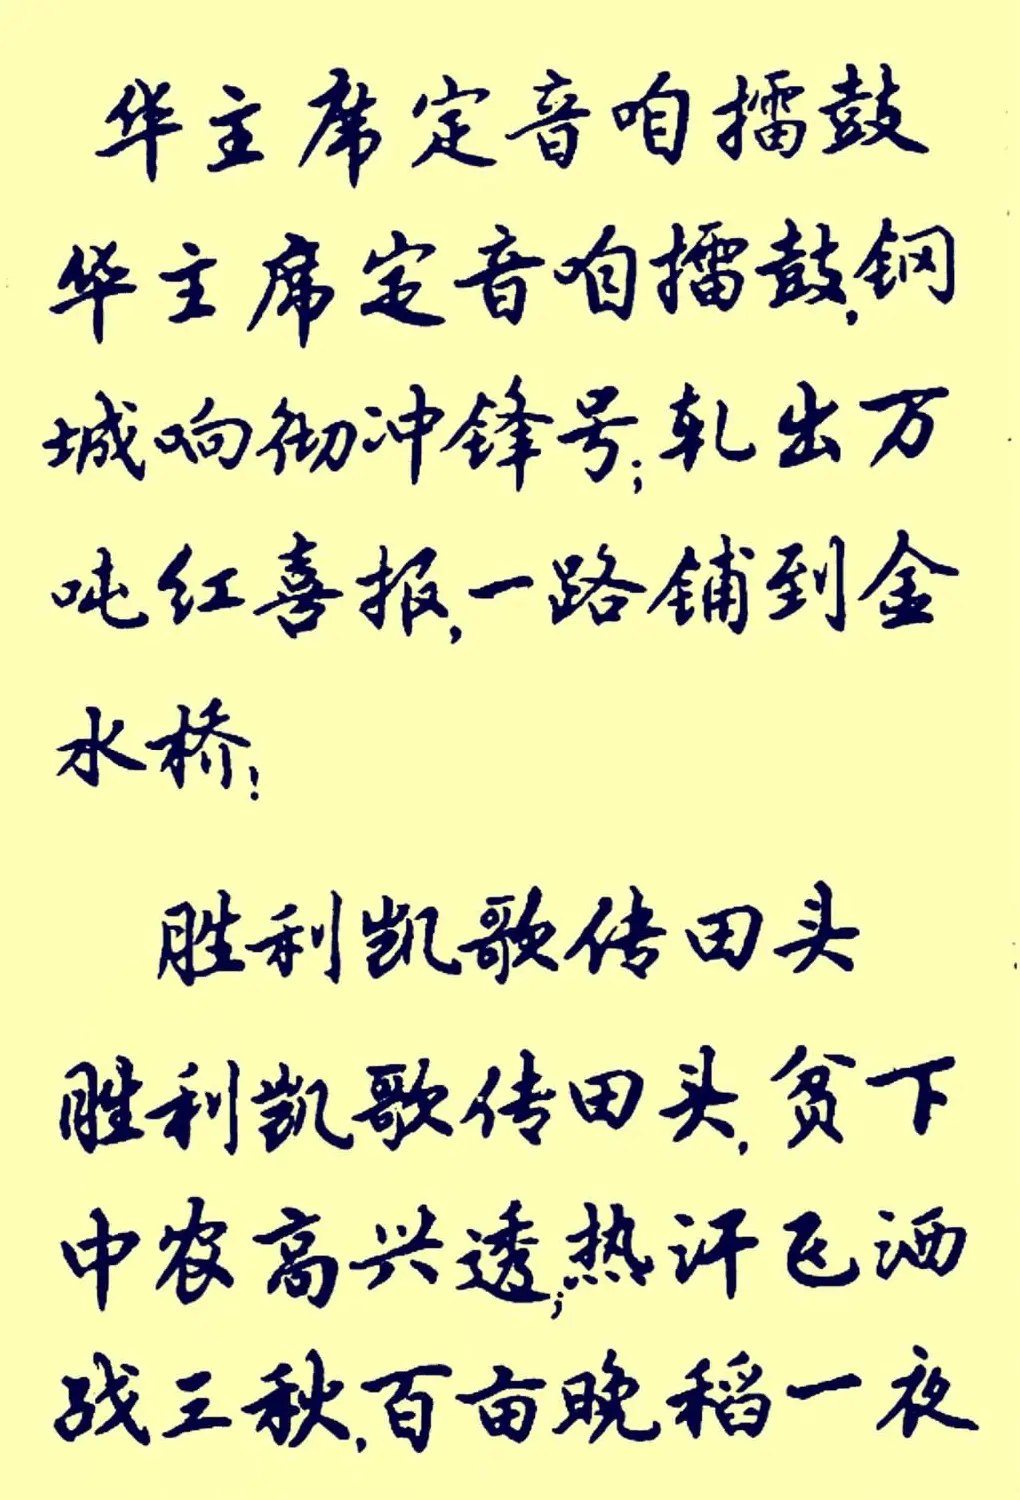 华主席定音咱擂鼓
华主席定音咱擂鼓,钢
城响彻冲锋号;轧出万
吨红喜报,一路铺到金
水桥!
胜利凯歌传田头
胜利凯歌传田头,贫下
中农高兴透;热汗飞洒
战三秋,百亩晚稻一夜